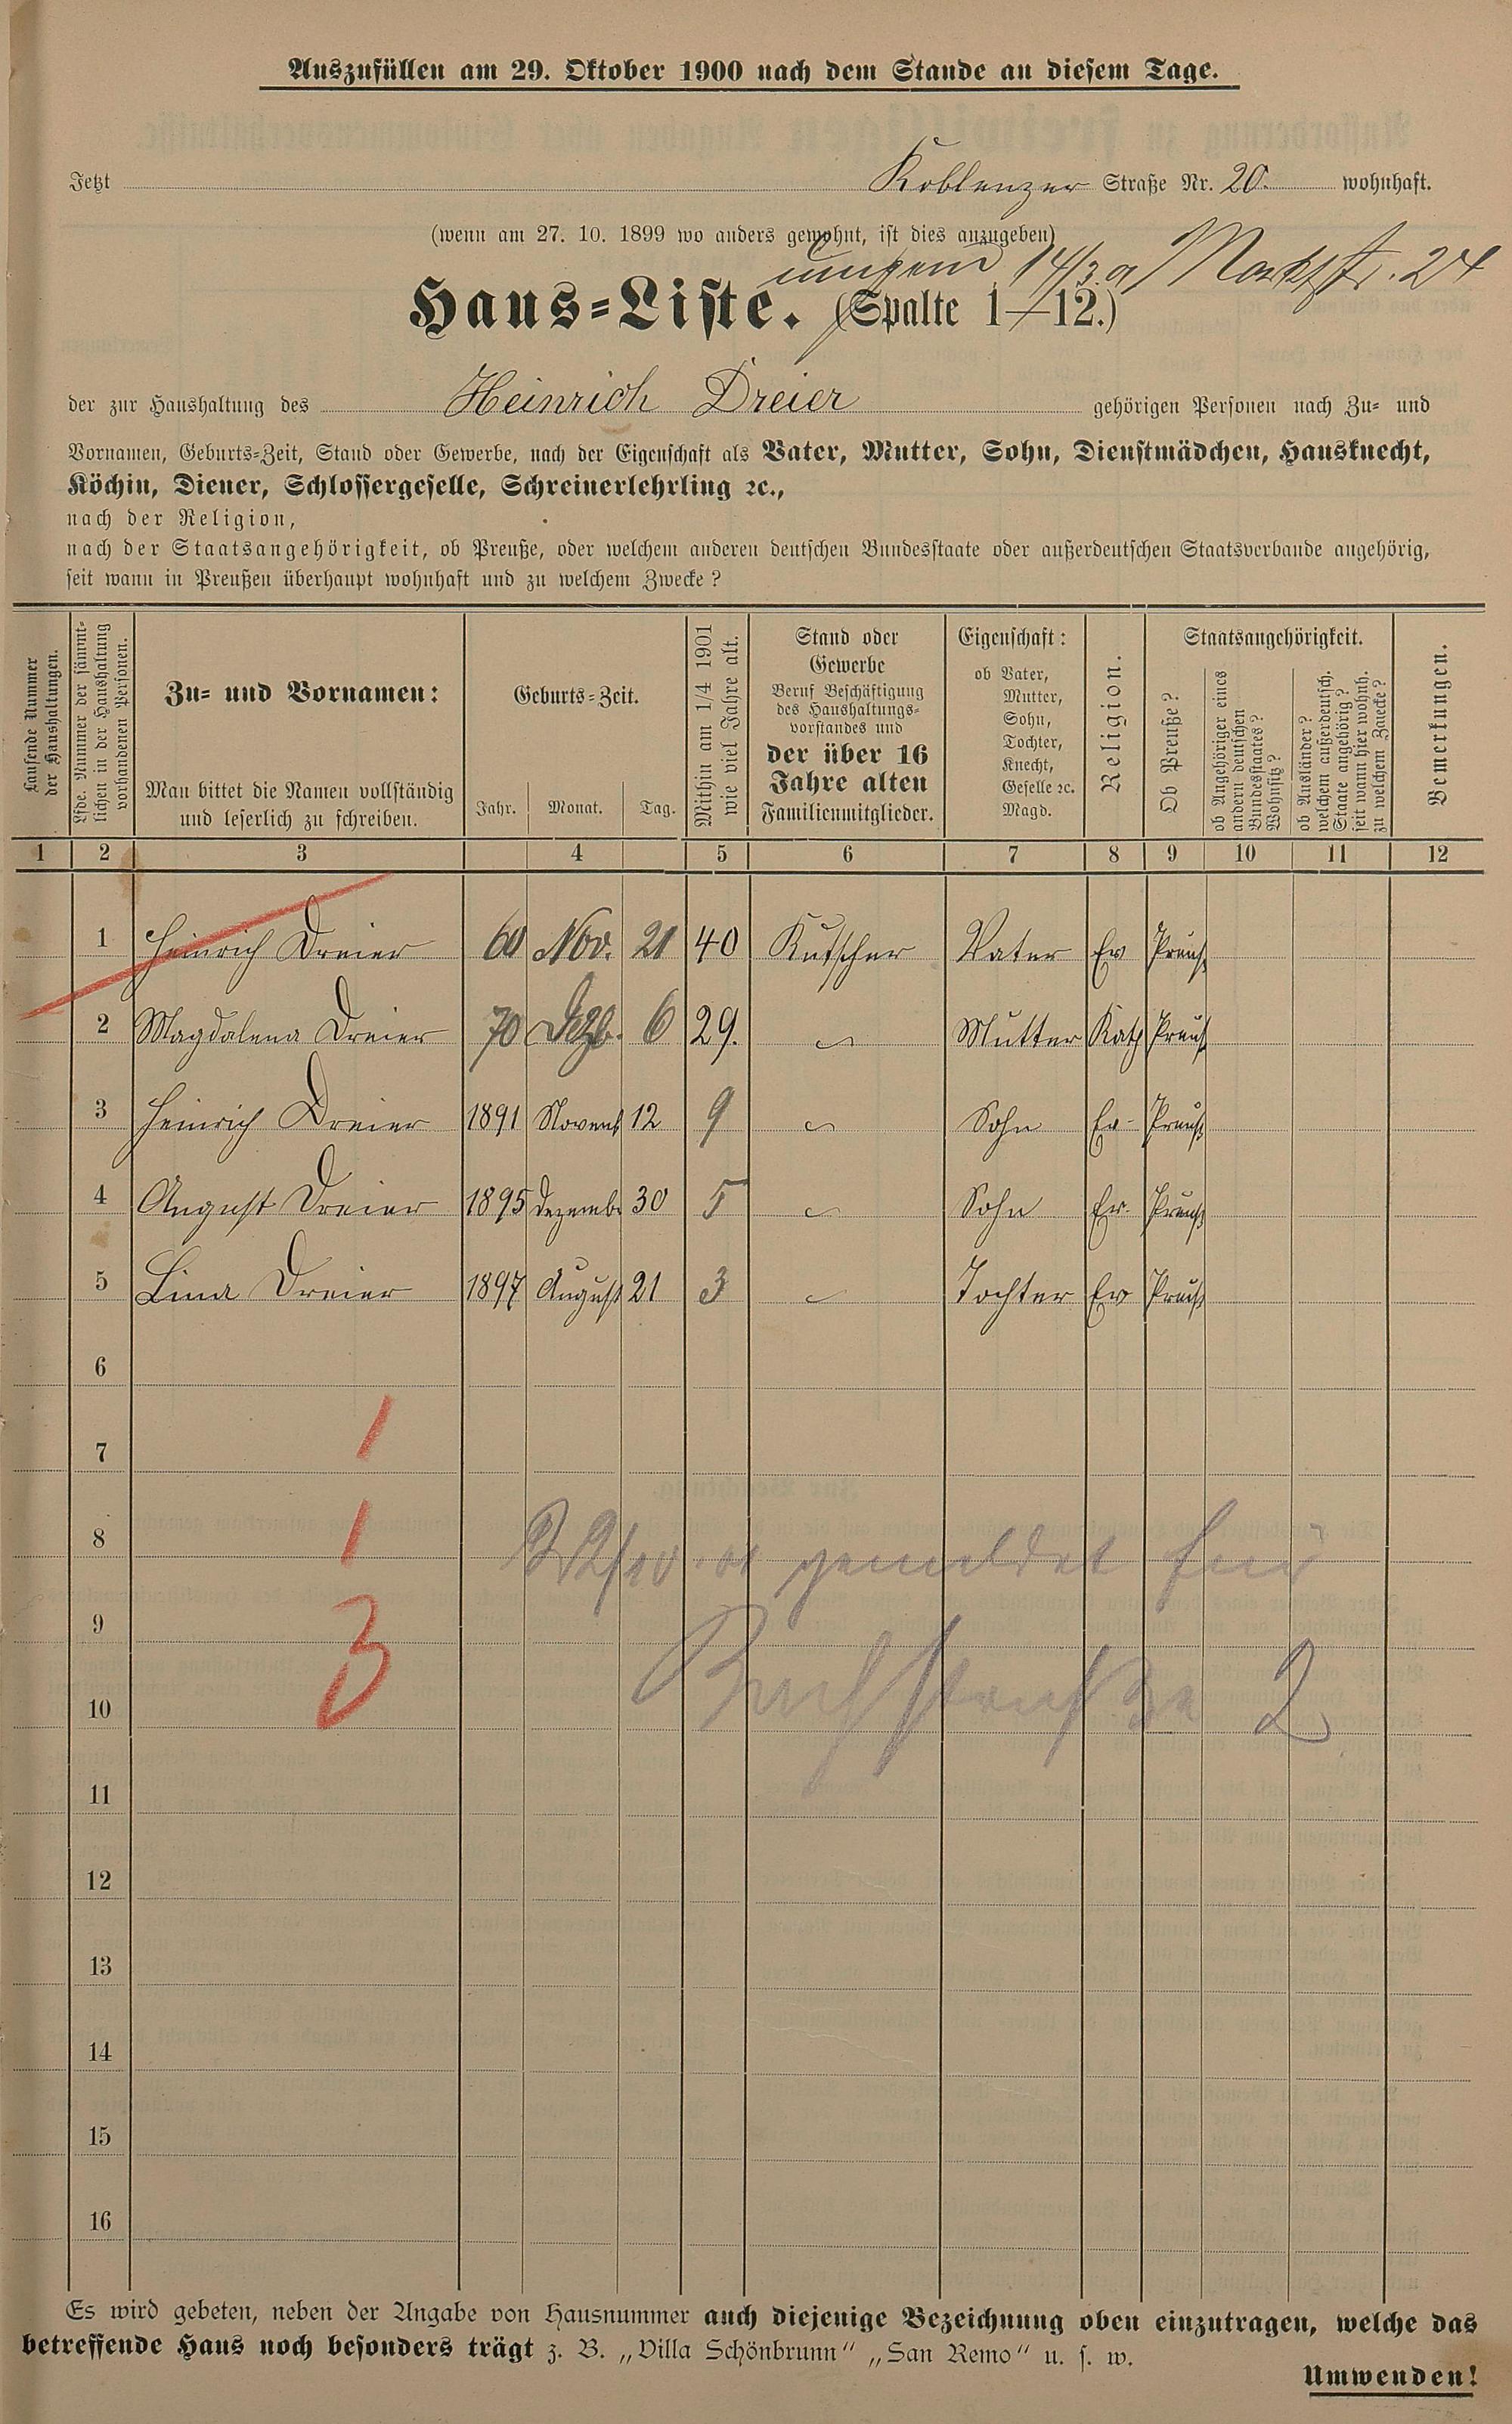 Auszufüllen am 29. Oktober 1900 nach dem Stande an diesem Tage.
Jetzt Koblenzer Straße Nr. 20. wohnhaft.
(wenn am 27. 10. 1899 wo anders gewohnt, ist dies anzugeben)
14/3 01 24
Haus-Liste. (Spalte 1—12.)
der zur Haushaltung des Heinrich Dreier gehörigen Personen nach Zu- und
Vornamen, Geburts-Zeit, Stand oder Gewerbe, nach der Eigenschaft als Vater, Mutter, Sohn, Dienstmädchen, Hausknecht,
Köchin, Diener, Schlossergeselle, Schreinerlehrling ꝛc.,
nach der Religion,
nach der Staatsangehörigkeit, ob Preuße, oder welchem anderen deutschen Bundesstaate oder außerdeutschen Staatsverbande angehörig,
seit wann in Preußen überhaupt wohnhaft und zu welchem Zwecke?
Laufende Nummer
der Haushaltungen.
Lfde. Nummer der sämmt-
lichen in der Haushaltung
vorhandenen Personen.
Zu- und Vornamen:
Man bittet die Namen vollständig
und leserlich zu schreiben.
Geburts-Zeit.
Jahr. Monat. Tag.
Mithin am 1/4 1901
wie viel Jahre alt.
Stand oder
Gewerbe
Beruf Beschäftigung
des Haushaltungs-
vorstandes und
der über 16
Jahre alten
Familienmitglieder.
Eigenschaft:
ob Vater,
Mutter,
Sohn,
Tochter,
Knecht,
Geselle ꝛc.
Magd.
Religion.
Staatsangehörigkeit.
Ob Preuße?
ob Angehöriger eines
andern deutschen
Bundesstaates?
Wohnsitz?
ob Ausländer?
welchem außerdeutsch.
Staate angehörig?
seit wann hier wohnh.
zu welchem Zwecke?
Bemerkungen.
1 2 3 4 5 6 7 8 9 10 11 12
1 Heinrich Dreier 60 Nov. 21 40 Kutscher Vater Ev Preuß
2 Magdalena Dreier 70 Dezb. 6 29. Mutter Kath Preuß
3 Heinrich Dreier 1891 Novemb 12 9 Sohn Ev- Preuß
4 August Dreier 1895 Dezembr 30 5 Sohn Ev. Preuß
5 Lina Dreier 1897 August 21 3 Tochter Ev Preuß
6
1
7
1
8 gemeldet
3
9
10 2
11
12
13
14
15
16
Es wird gebeten, neben der Angabe von Hausnummer auch diejenige Bezeichnung oben einzutragen, welche das
betreffende Haus noch besonders trägt z. B. „Villa Schönbrunn“ „San Remo“ u. s. w.
Umwenden!